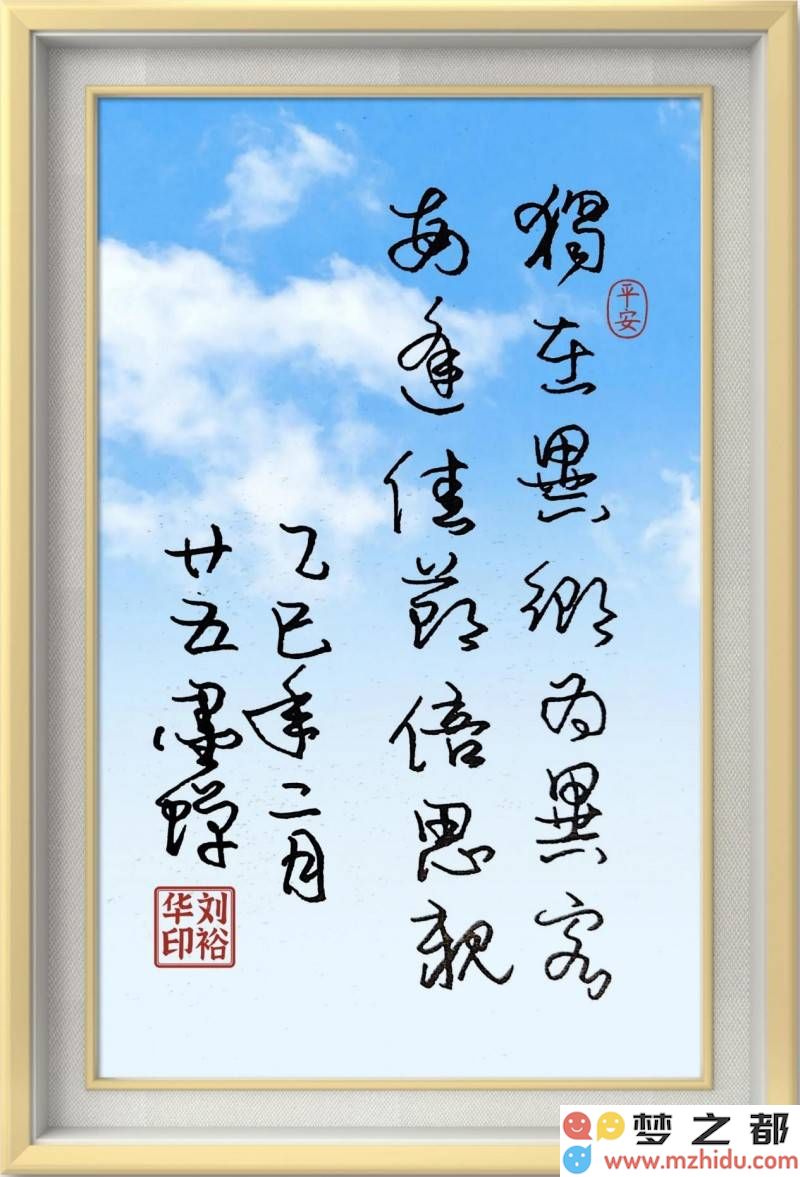 獨在異鄉为異客
每逢佳節倍思親
乙巳年二月
廿五墨蟬
平安
刘裕华印
梦之都
www.mzhidu.com